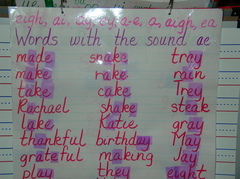 eigh, ai, ay, ey, a-e, a, aigh, ea
Words with the sound ae
made snake tray
make rake rain
take cake Trey
Rachael shake steak
lake Katie gray
thankful birthday May
grateful making Jay
play they eight